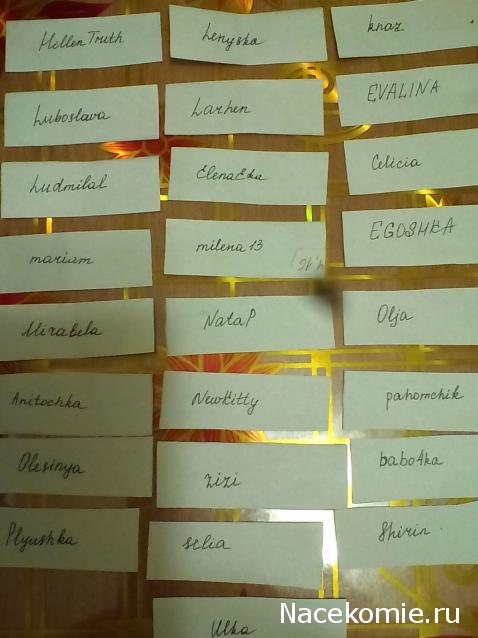 Hellen Truth
Lenyska
knaz
Luboslava
Larhen
EVALINA
Ludmilal
ElenaEka
Celicia
mariam
milena 13
EGOSHKA
Mirabela
NataP
Olja
Anitochka
NewKitty
pahomchik
Olesinya
zizi
babo4ka
Plyushka
selia
Shirin
Ulka
Nacekomie.ru